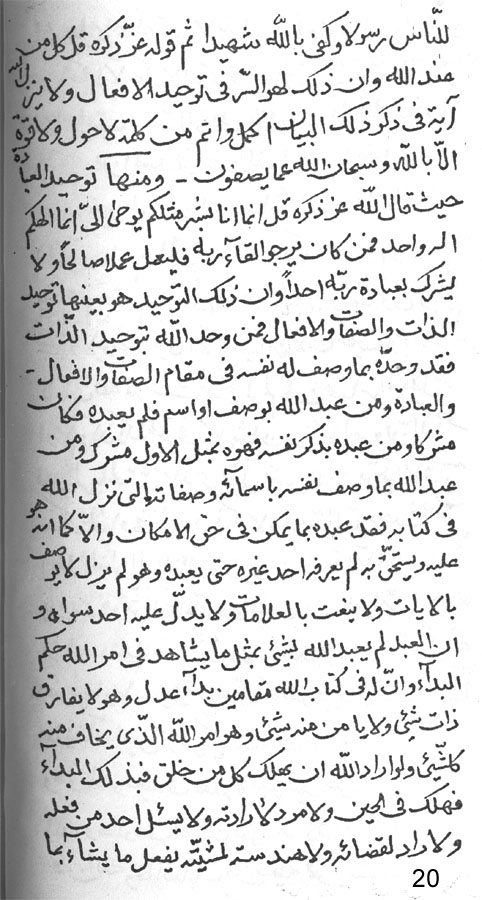 للنّاس رسولا وكفى بالله شهيدا ثم قوله عزّ ذكره قل كل من
عند الله وان ذلك لهو السّر فى توحيد الافعال ولا ينزل الله
آية فى ذكر ذلك البيان اكمل واتم من كلمة لا حول ولا قوة
الاّ بالله وسبحان الله عما يصفون - ومنها توحيد العبادة
حيث قال الله عز ذكره قل انما انا بشر مثلكم يوحى الىّ انما الهكم
اله واحد فمن كان يرجو لقاء ربه فليعمل عملا صالحاً ولا
يشرك بعبادة ربّه احداً وان ذلك التوحيد هو بعينها توحيد
الذات والصفات والافعال فمن وحد الله بتوحيد الذّات
فقد وحدّه بما وصف له نفسه فى مقام الصفات والافعال -
والعبادة ومن عبد الله بوصف او اسم فلم يعبده فكان
مشركا ومن عبده بذكر نفسه فهوه بمثل الاول مشرك ومن
عبد الله بما وصف نفسه باسمائه وصفاته التى نزل الله
فى كتابه فقد عبده بما يمكن فى حق الامكان والاّ كما انه هو
عليه ويستحقّ به لم يعرفه احد غيره حتى يعبده وهو لم يزل لا يوصف
بالايات ولا ينعت بالعلامات ولا يدلّ عليه احد سواه و
ان العبد لم يعبد الله بشئ بمثل ما يشاهد فى امر الله حكم
البدآء وانّ له فى كتاب الله مقامين بدآء عدل وهو لا يفارق
ذات شئ ولا يا من منه شئ وهو امر الله الذّى يخاف منه
كلشئ ولو اراد الله ان يهلك كل من خلق فبذلك البدآء
فهلك فى الحين ولا مرد لارادته ولا يسئل احد من فعله
ولا راد لقضائه ولا هندسته لمشيّته يفعل ما يشاء بما
20